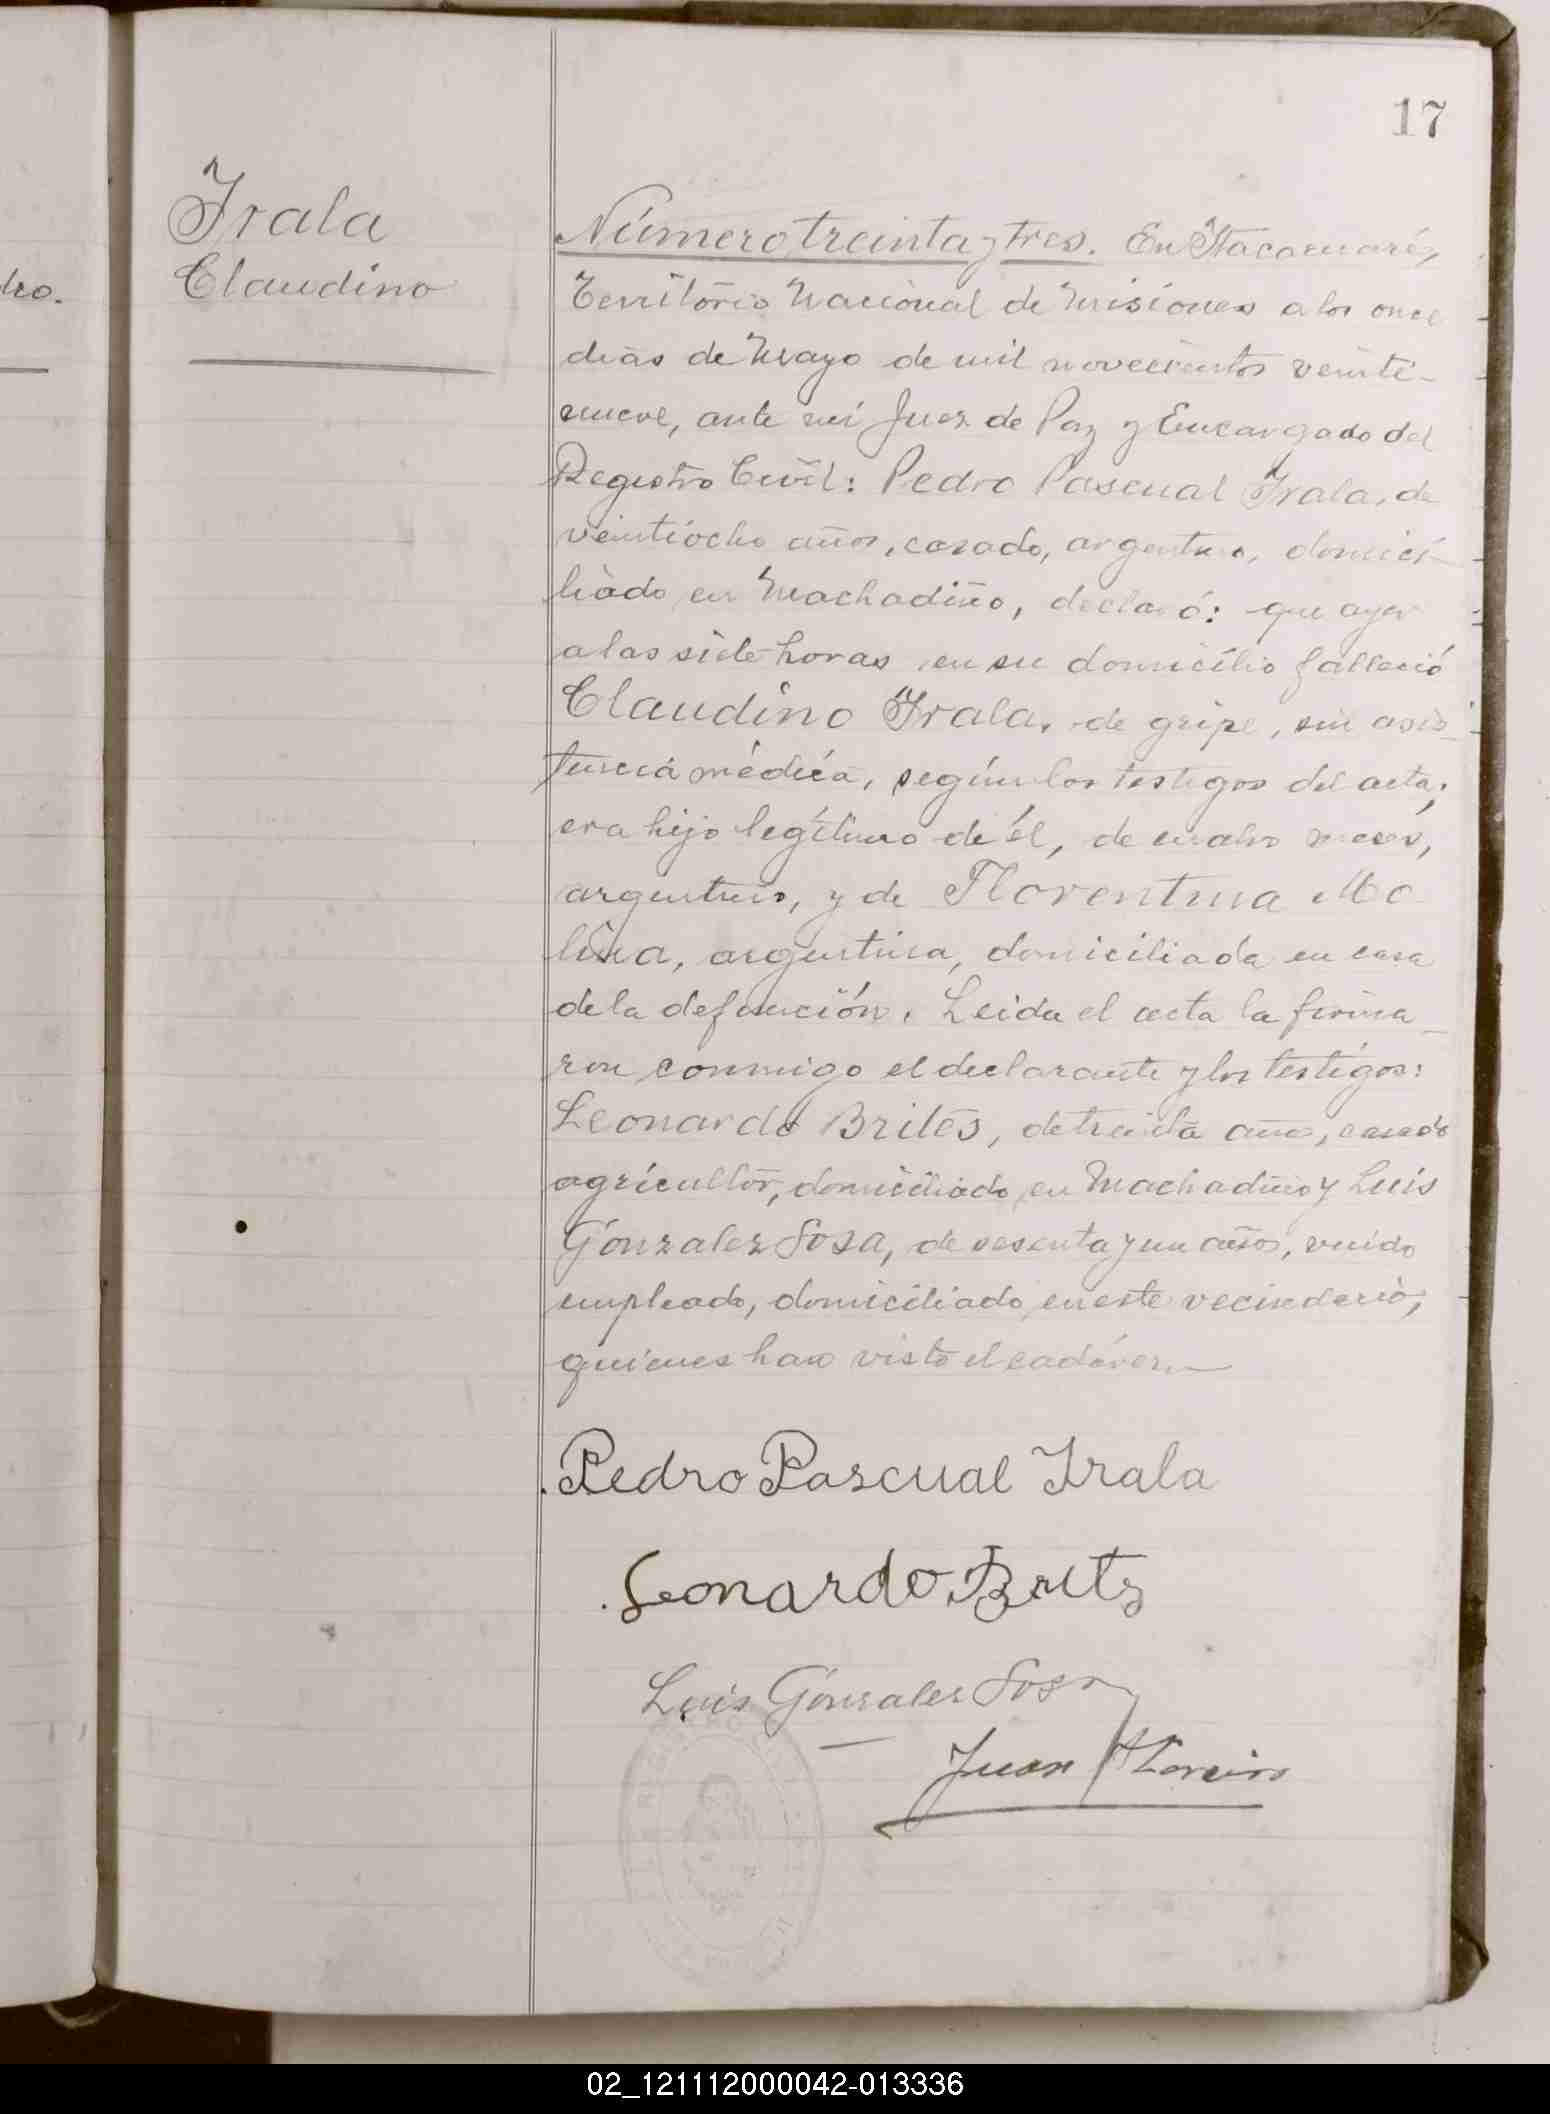 17
Irala
Claudino
dro.
Número treinta y tres. En Itacaruaré,
Territorio Nacional de Misiones a los once
dias de Mayo de mil novecientos veinti-
nueve, ante mi Juez de Paz y Encargado del
Registro Civil: Pedro Pascual Irala, de
veintiocho años, casado, argentino, domici-
liado en Machadiño, declaró: que ayer
a las siete horas en su domicilio falleció
Claudino Irala, de gripe, sin asis-
tencia médica, según los testigos del acta;
era hijo legítimo de él, de cuatro meses,
argentino, y de Florentina Mo
lina, argentina, domiciliada en casa
de la defunción. Leida el acta la firma-
ron conmigo el declarante y los testigos:
Leonardo Brites, de treinta años, casado
agricultor, domiciliado en Machadiño y Luis
Gónzalez Sosa, de sesenta y un años, viudo
empleado, domiciliado en este vecindario,
quienes han visto el cadáver.
Pedro Pascual Irala
Leonardo Brits
Luis Gónzalez Sosa
Juan
02_121112000042-013336